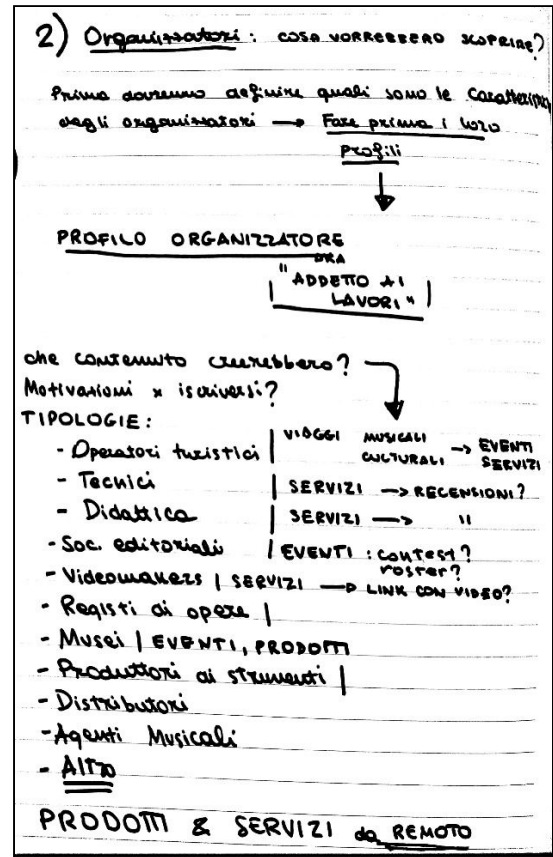 2) Organizzatori: COSA VORREBBERO SCOPRIRE?
Prima dovremmo definire quali sono le caratteristiche
degli organizzatori → Fare prima i loro
profili
PROFILO ORGANIZZATORE
ORA
"ADDETTO AI
LAVORI"
che contenuto creerebbero?
Motivazioni x iscriversi?
TIPOLOGIE:
- Operatori turistici | VIAGGI MUSICALI CULTURALI → EVENTI SERVIZI
- Tecnici | SERVIZI → RECENSIONI?
- Didattica | SERVIZI → "
- Soc. editoriali | EVENTI: contest? roster?
- Videomakers | SERVIZI → LINK CON VIDEO?
- Registi di opere |
- Musei | EVENTI, PRODOTTI
- Produttori di strumenti |
- Distributori
- Agenti Musicali
- Altro
PRODOTTI & SERVIZI da REMOTO